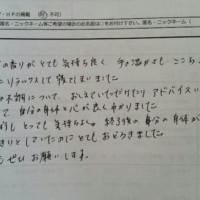 ・HPの掲載 可 不可)
匿名・ニックネーム等ご希望の場合のお名前は:をお付け下さい。匿名・ニックネーム (
の香りがとても気持ち良く、手の温かさも、ここち
にリラックスして寝てしまいました
の不調について、おしえていただけたり アドバイスい
て、自分の身体と心が良くわかりました。
もとっても気持ちよく、終了後の自分の身体が
きりとしていたのにとてもおどろきました。
ぜひお願いします。